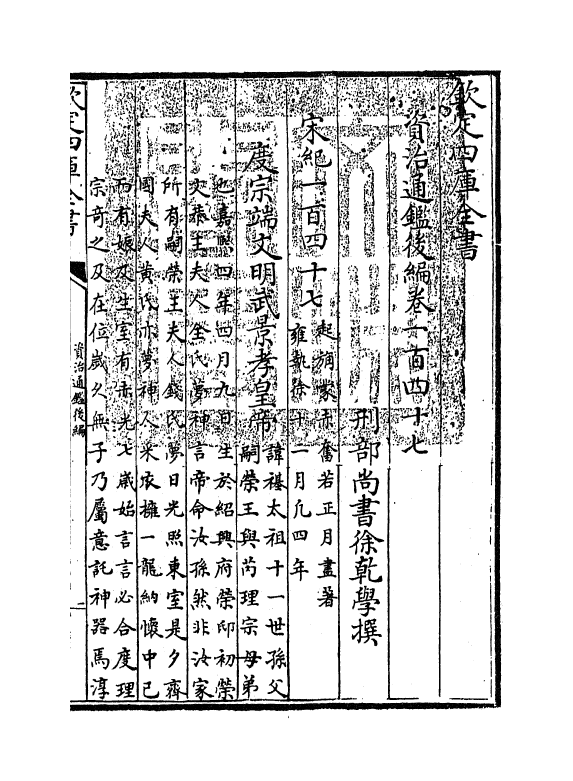 欽定四庫全書
資治通鑑後編卷一百四十七
刑部尚書徐乾學撰
宋紀一百四十七
起旃蒙赤奮若正月盡著
雍執徐十一月凡四年
度宗端文明武景孝皇帝
諱禥太祖十一世孫父
嗣榮王與芮理宗母弟
也嘉熙四年四月九日生於紹興府榮邸初榮
文恭王夫人全氏夢神言帝命汝孫然非汝家
所有嗣榮王夫人錢氏夢日光照東室是夕齊
國夫人黄氏亦夢神人采衣擁一龍納懷中已
而有娠及生室有赤光七歲始言言必合度理
宗奇之及在位歲久無子乃屬意託神器焉淳
欽定四庫全書
資治通鑑後編
一